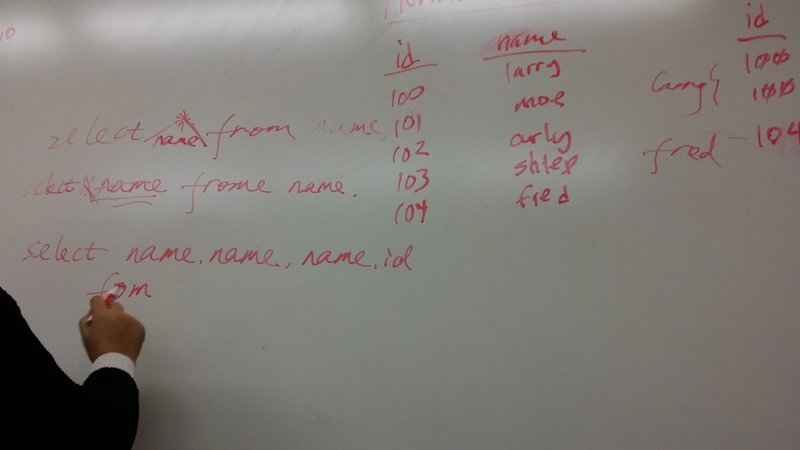 id name id
larry
100 moe 100
select name from name 101 curly 100
102 fred - 104
select name frome name. 103 fred
104
select name.name, name.id
from